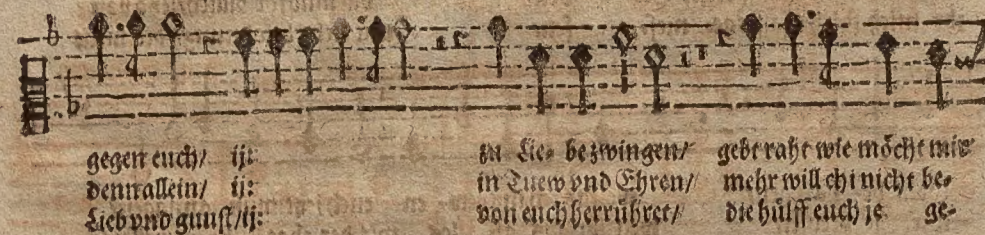 gegen euch/ ij: zu Lie- bezwingen/ gebt raht wie möcht mir
dennallein/ ij: in Tuew vnd Ehren/ mehr will chi nicht be-
Lieb vnd gunst/ij: von euch herrühret/ die hülff euch je ge-